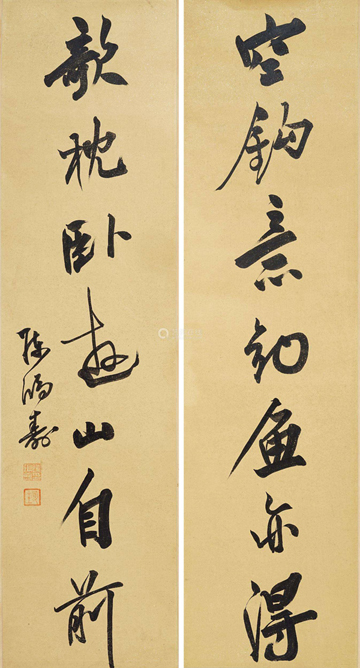 空鈎意釣魚亦得
欹枕卧遊山自前
陳鴻壽